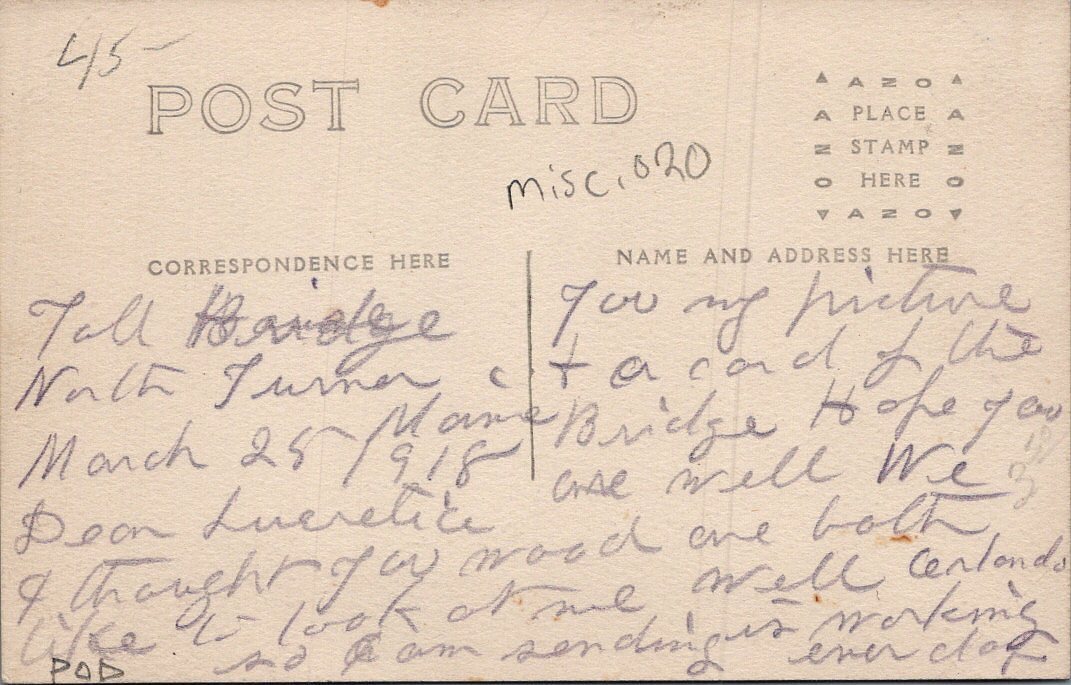 45-
POST CARD
misc. 020
AZO
A PLACE A
Z STAMP Z
O HERE O
AZO
CORRESPONDENCE HERE
NAME AND ADDRESS HERE
Toll Bridge
North Turner
Maine
March 25 1918
Dear Lucretia
I thought you wood
like to look at me
so I am sending
POD
You my picture
+ a card of the
Bridge Hope you
are well We
are both
well
is working
ever day